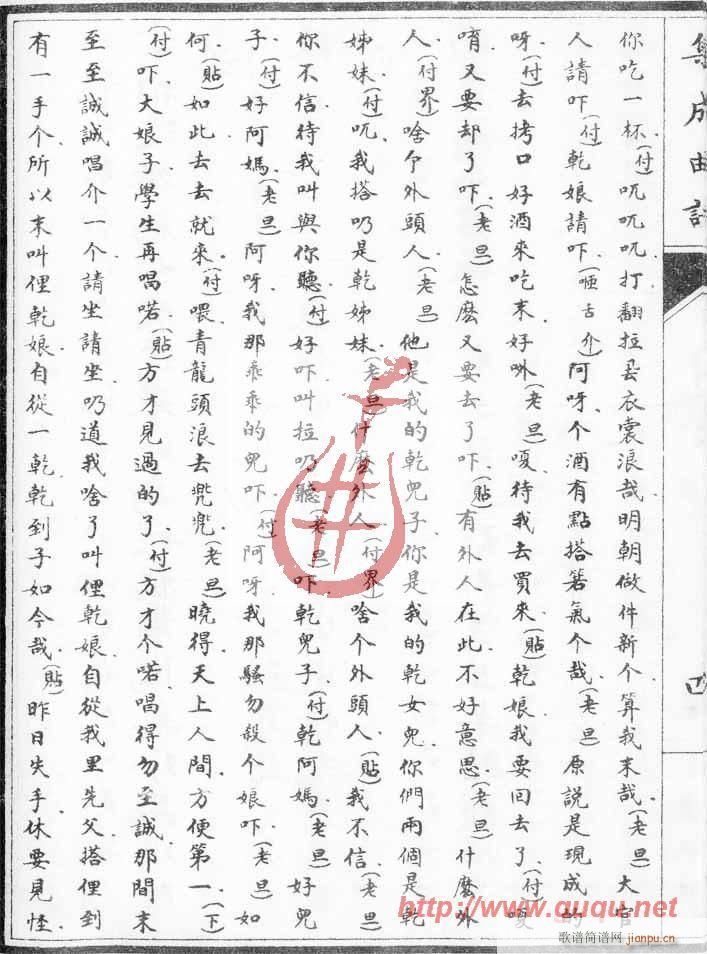 集成曲譜
你吃一杯．(付)呒呒呒．打翻拉丟衣裳浪哉．明朝做件新个．算我末哉．(老旦)大官
人請吓．(付)乾娘請吓．(咂舌介)阿呀、个酒有點搭箬氣个哉．(老旦)原說是現成的
呀．(付)去拷口好酒來吃末好㖸．(老旦)嗄、待我去買來．(貼)乾娘、我要回去了．(付)嗄
唷、又要却了吓．(老旦)怎麽又要去了吓．(貼)有外人在此、不好意思．(老旦)什麽外
人．(付界)啥个外頭人．(老旦)他是我的乾兒子、你是我的乾女兒、你們兩個是乾
姊妹．(付)呒、我搭吤是乾姊妹．(老旦)什麽外人．(付界)啥个外頭人．(貼)我不信．(老旦)
你不信、待我叫與你聽．(付)好吓、叫拉吤聽．(老旦)吓、乾兒子．(付)乾阿媽．(老旦)好兒
子．(付)好阿媽．(老旦)阿呀、我那乖乖的兒吓．(付)阿呀、我那騷勿殺个娘吓．(老旦)如
何．(貼)如此去去就來．(付)喂、青龍頭浪去兜兜．(老旦)曉得、天上人間、方便第一．(下)
(付)吓、大娘子、學生再唱喏．(貼)方才見過的了．(付)方才个喏、唱得勿至誠、那間末
至至誠誠唱介一个．請坐請坐．吤道我啥了叫俚乾娘、自從我里先父搭俚到
有一手个、所以末叫俚乾娘．自從一乾、乾到子如今哉．(貼)昨日失手、休要見怪．
四
http://www.guqu.net
歌谱简谱网 jianpu.cn